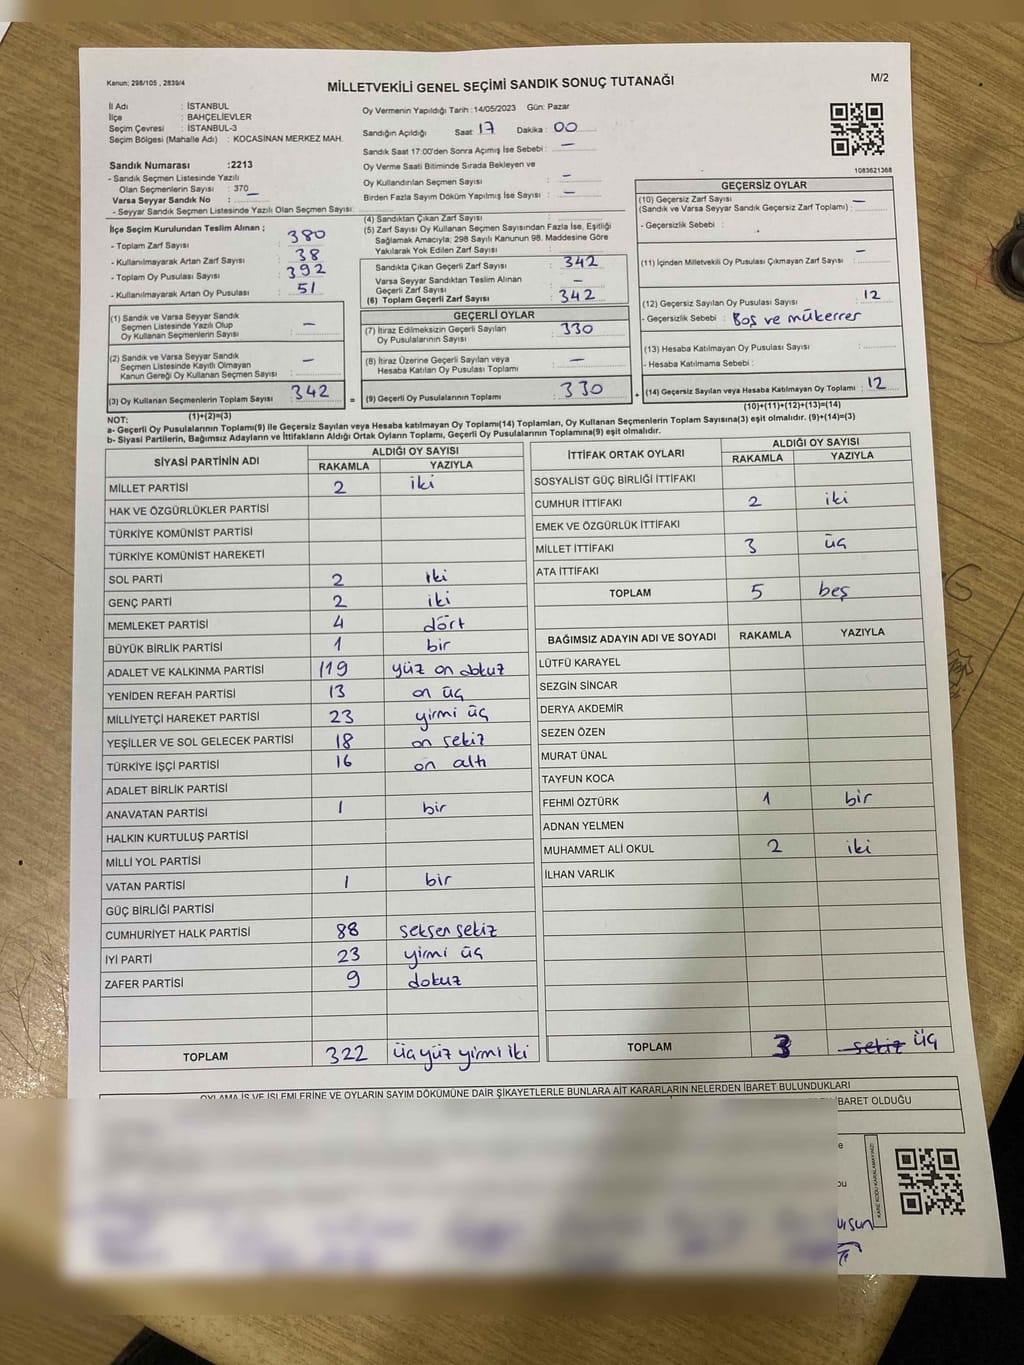 Kanun; 298/105 , 2839/4
MİLLETVEKİLİ GENEL SEÇİMİ SANDIK SONUÇ TUTANAĞI
M/2
İl Adı : İSTANBUL
İlçe : BAHÇELİEVLER
Seçim Çevresi : İSTANBUL-3
Seçim Bölgesi (Mahalle Adı) : KOCASİNAN MERKEZ MAH.
Sandık Numarası :2213
- Sandık Seçmen Listesinde Yazılı
Olan Seçmenlerin Sayısı : 370
Varsa Seyyar Sandık No : –
- Seyyar Sandık Seçmen Listesinde Yazılı Olan Seçmen Sayısı:
Oy Vermenin Yapıldığı Tarih :14/05/2023 Gün: Pazar
Sandığın Açıldığı Saat: 17 Dakika : 00
Sandık Saat 17:00'den Sonra Açılmış İse Sebebi : –
Oy Verme Saati Bitiminde Sırada Bekleyen ve
Oy Kullandırılan Seçmen Sayısı : –
Birden Fazla Sayım Döküm Yapılmış İse Sayısı : –
1083621368
İlçe Seçim Kurulundan Teslim Alınan ;
- Toplam Zarf Sayısı : 380
- Kullanılmayarak Artan Zarf Sayısı : 38
- Toplam Oy Pusulası Sayısı : 392
- Kullanılmayarak Artan Oy Pusulası : 51
(1) Sandık ve Varsa Seyyar Sandık
Seçmen Listesinde Yazılı Olup
Oy Kullanan Seçmenlerin Sayısı : –
(2) Sandık ve Varsa Seyyar Sandık
Seçmen Listesinde Kayıtlı Olmayan
Kanun Gereği Oy Kullanan Seçmen Sayısı : –
(3) Oy Kullanan Seçmenlerin Toplam Sayısı : 342
(1)+(2)=(3)
(4) Sandıktan Çıkan Zarf Sayısı :
(5) Zarf Sayısı Oy Kullanan Seçmen Sayısından Fazla İse, Eşitliği
Sağlamak Amacıyla; 298 Sayılı Kanunun 98. Maddesine Göre
Yakılarak Yok Edilen Zarf Sayısı :
Sandıkta Çıkan Geçerli Zarf Sayısı : 342
Varsa Seyyar Sandıktan Teslim Alınan
Geçerli Zarf Sayısı : –
(6) Toplam Geçerli Zarf Sayısı : 342
GEÇERLİ OYLAR
(7) İtiraz Edilmeksizin Geçerli Sayılan
Oy Pusulalarının Sayısı : 330
(8) İtiraz Üzerine Geçerli Sayılan veya
Hesaba Katılan Oy Pusulası Toplamı : –
= (9) Geçerli Oy Pusulalarının Toplamı : 330
GEÇERSİZ OYLAR
(10) Geçersiz Zarf Sayısı –
(Sandık ve Varsa Seyyar Sandık Geçersiz Zarf Toplamı) :
- Geçersizlik Sebebi :
(11) İçinden Milletvekili Oy Pusulası Çıkmayan Zarf Sayısı : –
(12) Geçersiz Sayılan Oy Pusulası Sayısı : 12
- Geçersizlik Sebebi : Boş ve mükerrer
(13) Hesaba Katılmayan Oy Pusulası Sayısı :
- Hesaba Katılmama Sebebi :
+ (14) Geçersiz Sayılan veya Hesaba Katılmayan Oy Toplamı : 12
(10)+(11)+(12)+(13)=(14)
NOT:
a- Geçerli Oy Pusulalarının Toplamı(9) ile Geçersiz Sayılan veya Hesaba katılmayan Oy Toplamı(14) Toplamları, Oy Kullanan Seçmenlerin Toplam Sayısına(3) eşit olmalıdır. (9)+(14)=(3)
b- Siyasi Partilerin, Bağımsız Adayların ve İttifakların Aldığı Ortak Oyların Toplamı, Geçerli Oy Pusulalarının Toplamına(9) eşit olmalıdır.
SİYASİ PARTİNİN ADI ALDIĞI OY SAYISI
RAKAMLA YAZIYLA
MİLLET PARTİSİ 2 iki
HAK VE ÖZGÜRLÜKLER PARTİSİ
TÜRKİYE KOMÜNİST PARTİSİ
TÜRKİYE KOMÜNİST HAREKETİ
SOL PARTİ 2 iki
GENÇ PARTİ 2 iki
MEMLEKET PARTİSİ 4 dört
BÜYÜK BİRLİK PARTİSİ 1 bir
ADALET VE KALKINMA PARTİSİ 119 yüz on dokuz
YENİDEN REFAH PARTİSİ 13 on üç
MİLLİYETÇİ HAREKET PARTİSİ 23 yirmi üç
YEŞİLLER VE SOL GELECEK PARTİSİ 18 on sekiz
TÜRKİYE İŞÇİ PARTİSİ 16 on altı
ADALET BİRLİK PARTİSİ
ANAVATAN PARTİSİ 1 bir
HALKIN KURTULUŞ PARTİSİ
MİLLİ YOL PARTİSİ
VATAN PARTİSİ 1 bir
GÜÇ BİRLİĞİ PARTİSİ
CUMHURİYET HALK PARTİSİ 88 seksen sekiz
İYİ PARTİ 23 yirmi üç
ZAFER PARTİSİ 9 dokuz
TOPLAM 322 üçyüz yirmi iki
İTTİFAK ORTAK OYLARI ALDIĞI OY SAYISI
RAKAMLA YAZIYLA
SOSYALİST GÜÇ BİRLİĞİ İTTİFAKI
CUMHUR İTTİFAKI 2 iki
EMEK VE ÖZGÜRLÜK İTTİFAKI
MİLLET İTTİFAKI 3 üç
ATA İTTİFAKI
TOPLAM 5 beş
BAĞIMSIZ ADAYIN ADI VE SOYADI RAKAMLA YAZIYLA
LÜTFÜ KARAYEL
SEZGİN SİNCAR
DERYA AKDEMİR
SEZEN ÖZEN
MURAT ÜNAL
TAYFUN KOCA
FEHMİ ÖZTÜRK 1 bir
ADNAN YELMEN
MUHAMMET ALİ OKUL 2 iki
İLHAN VARLIK
TOPLAM 3 sekiz üç
OYLAMA İŞ VE İŞLEMLERİNE VE OYLARIN SAYIM DÖKÜMÜNE DAİR ŞİKAYETLERLE BUNLARA AİT KARARLARIN NELERDEN İBARET BULUNDUKLARI
İBARET OLDUĞU
KARE KODU KARALAMAYINIZ!